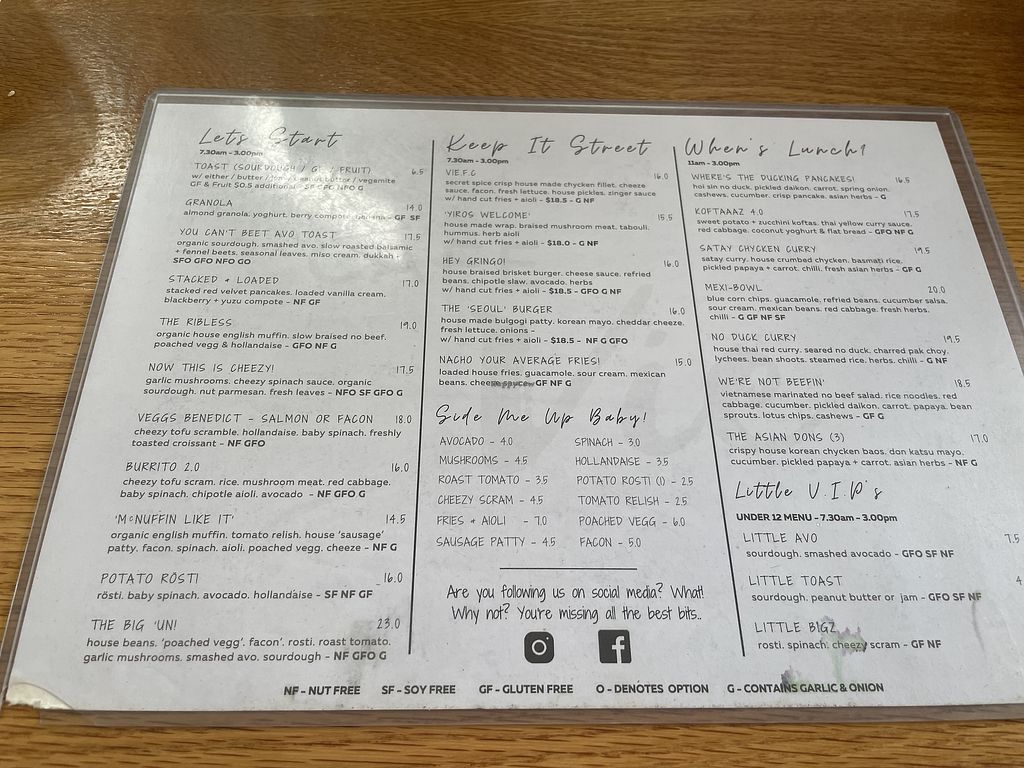 Lets Start
7.30am - 3.00pm
TOAST (SOURDOUGH / GF / FRUIT) 6.5
w/ either / butter / jam / peanut butter / vegemite
GF & Fruit $0.5 additional - SF GFO NFO G
GRANOLA 14.0
almond granola. yoghurt. berry compote. banana - GF SF
YOU CAN'T BEET AVO TOAST 17.5
organic sourdough. smashed avo. slow roasted balsamic
+ fennel beets. seasonal leaves. miso cream. dukkah +
SFO GFO NFO GO
STACKED + LOADED 17.0
stacked red velvet pancakes. loaded vanilla cream.
blackberry + yuzu compote - NF GF
THE RIBLESS 19.0
organic house english muffin. slow braised no beef.
poached vegg & hollandaise - GFO NF G
NOW THIS IS CHEEZY! 17.5
garlic mushrooms. cheezy spinach sauce. organic
sourdough. nut parmesan. fresh leaves - NFO SF GFO G
VEGGS BENEDICT - SALMON OR FACON 18.0
cheezy tofu scramble. hollandaise. baby spinach. freshly
toasted croissant - NF GFO
BURRITO 2.0 16.0
cheezy tofu scram. rice. mushroom meat. red cabbage.
baby spinach. chipotle aioli. avocado - NF GFO G
'McNUFFIN LIKE IT' 14.5
organic english muffin. tomato relish. house 'sausage'
patty. facon. spinach. aioli. poached vegg. cheeze - NF G
POTATO RÖSTI 16.0
rösti. baby spinach. avocado. hollandaise - SF NF GF
THE BIG 'UN! 23.0
house beans. 'poached vegg'. facon'. rosti. roast tomato.
garlic mushrooms. smashed avo. sourdough - NF GFO G
Keep It Street
7.30am - 3.00pm
V.I.E.F.C 16.0
secret spice crisp house made chycken fillet. cheeze
sauce. facon. fresh lettuce. house pickles. zinger sauce
w/ hand cut fries + aioli - $18.5 - G NF
'YIROS WELCOME' 15.5
house made wrap. braised mushroom meat. tabouli.
hummus. herb aioli
w/ hand cut fries + aioli - $18.0 - G NF
HEY GRINGO! 16.0
house braised brisket burger. cheeze sauce. refried
beans. chipotle slaw. avocado. herbs
w/ hand cut fries + aioli - $18.5 - GFO G NF
THE 'SEOUL' BURGER 16.0
house made bulgogi patty. korean mayo. cheddar cheeze.
fresh lettuce. onions -
w/ hand cut fries + aioli - $18.5 - NF G GFO
NACHO YOUR AVERAGE FRIES! 15.0
loaded house fries. guacamole. sour cream. mexican
beans. cheeze GF NF G
happycow
Side Me Up Baby!
AVOCADO - 4.0 SPINACH - 3.0
MUSHROOMS - 4.5 HOLLANDAISE - 3.5
ROAST TOMATO - 3.5 POTATO ROSTI (1) - 2.5
CHEEZY SCRAM - 4.5 TOMATO RELISH - 2.5
FRIES + AIOLI - 7.0 POACHED VEGG - 6.0
SAUSAGE PATTY - 4.5 FACON - 5.0
Are you following us on social media? What!
Why not? You're missing all the best bits..
When's Lunch?
11am - 3.00pm
WHERE'S THE DUCKING PANCAKES! 16.5
hoi sin no duck. pickled daikon. carrot. spring onion.
cashews. cucumber. crisp pancake. asian herbs - G
KOFTAAAZ 4.0 17.5
sweet potato + zucchini koftas. thai yellow curry sauce.
red cabbage. coconut yoghurt & flat bread - GFO NF G
SATAY CHYCKEN CURRY 19.5
satay curry. house crumbed chycken. basmati rice.
pickled papaya + carrot. chilli. fresh asian herbs - GF G
MEXI-BOWL 20.0
blue corn chips. guacamole. refried beans. cucumber salsa.
sour cream. mexican beans. red cabbage. fresh herbs.
chilli - G GF NF SF
NO DUCK CURRY 19.5
house thai red curry. seared no duck. charred pak choy.
lychees. bean shoots. steamed rice. herbs. chilli - G NF
WE'RE NOT BEEFIN' 18.5
vietnamese marinated no beef salad. rice noodles. red
cabbage. cucumber. pickled daikon. carrot. papaya. bean
sprouts. lotus chips. cashews - GF G
THE ASIAN DONS (3) 17.0
crispy house korean chycken baos. don katsu mayo.
cucumber. pickled papaya + carrot. asian herbs - NF G
Little V.I.P's
UNDER 12 MENU - 7.30am - 3.00pm
LITTLE AVO 7.5
sourdough. smashed avocado - GFO SF NF
LITTLE TOAST 4
sourdough. peanut butter or jam - GFO SF NF
LITTLE BIGZ
rosti. spinach. cheezy scram - GF NF
NF - NUT FREE SF - SOY FREE GF - GLUTEN FREE O - DENOTES OPTION G - CONTAINS GARLIC & ONION